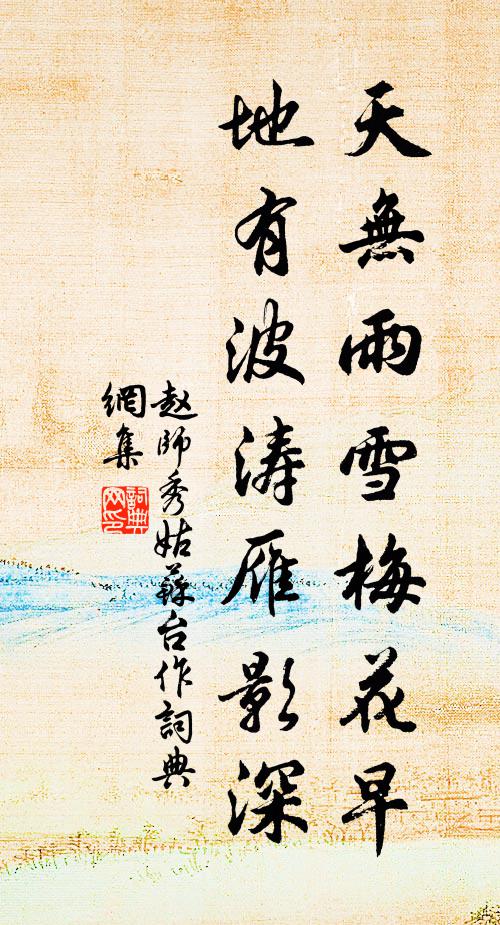 天無雨雪梅花早
地有波涛雁影深
赵師秀姑蘇台作詞典
網集
詞典
网印